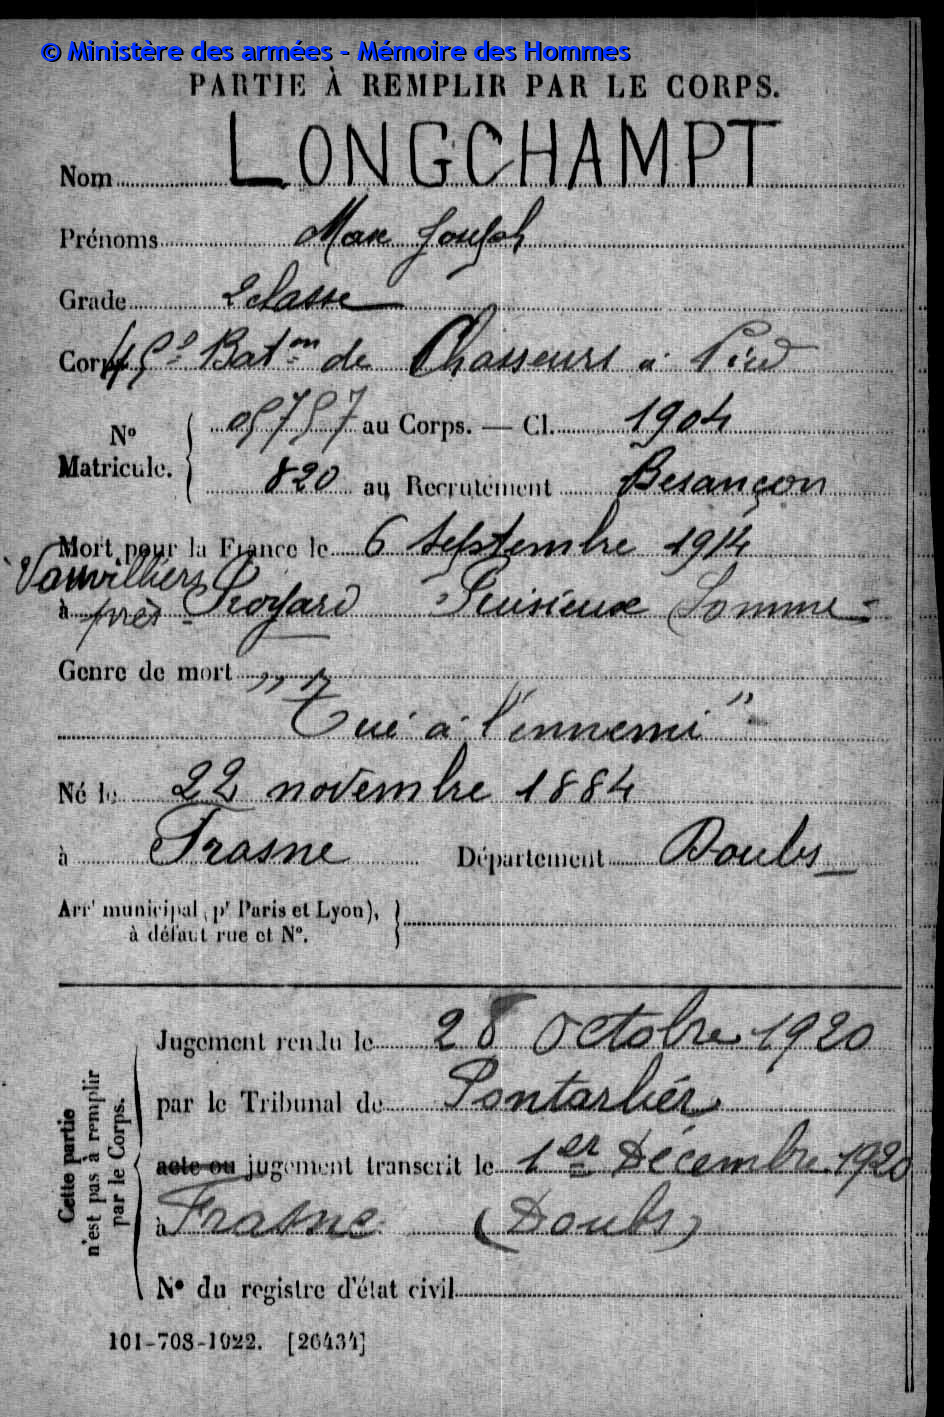 © Ministère des armées - Mémoire des Hommes
PARTIE À REMPLIR PAR LE CORPS.
Nom LONGCHAMPT
Prénoms Max Joseph
Grade 2 classe
Corps 45e Baton de Chasseurs à Pied
Nº Matricule. { 05757 au Corps. — Cl. 1904
820 au Recrutement Besançon
Mort pour la France le 6 Septembre 1914
Vauvilliers
à près Proyard Puisieux Somme
Genre de mort
"Tué à l'ennemi"
Né le 22 novembre 1884
à Frasne Département Doubs
Arrt municipal (pr Paris et Lyon),
à défaut rue et Nº.
Cette partie
n'est pas à remplir
par le Corps.
Jugement rendu le 28 Octobre 1920
par le Tribunal de Pontarlier
acte ou jugement transcrit le 1er Décembre 1920
à Frasne (Doubs)
Nº du registre d'état civil
101-708-1922. [26434]